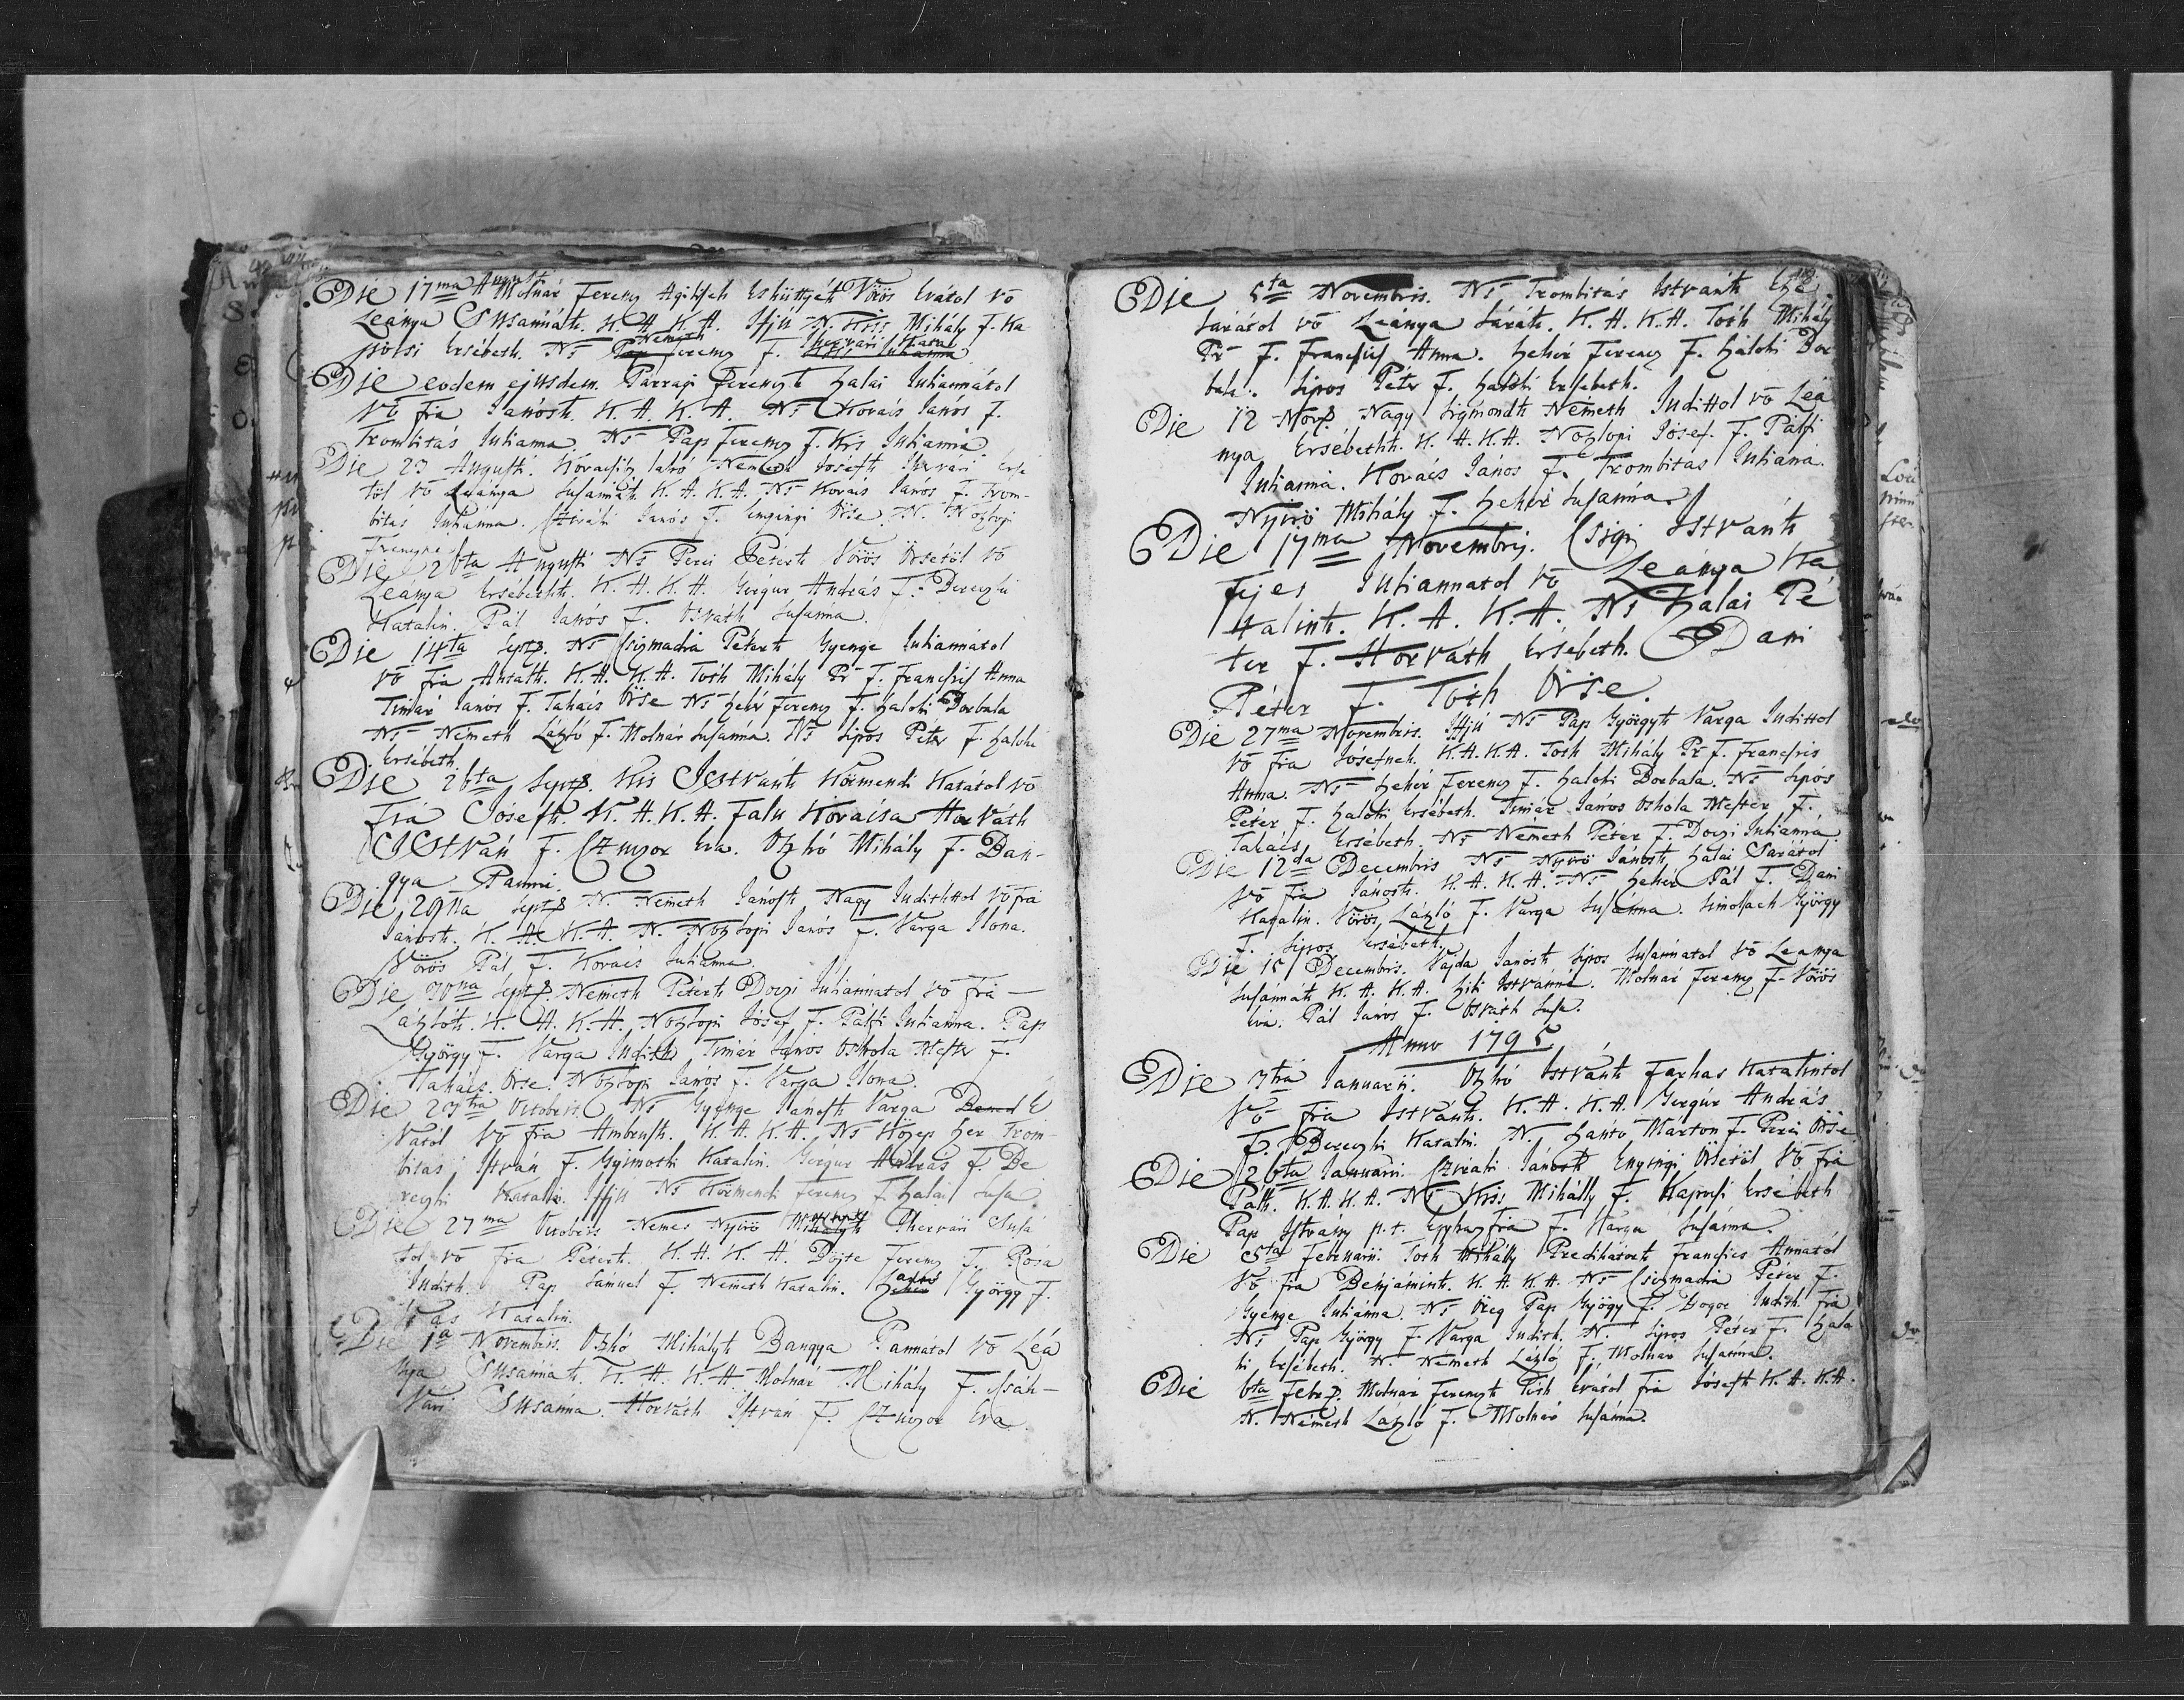 Die 17ma Augusti
Molnár Ferencz Agilisek Esküttyek Vörös Evátol vō
Leánya Susannáh. K. A. K. A. Ifjú N. Kis Mihály F. Ka
polsi Ersébeth. Ns Nemeth Ferencz F. Thervári Kata
Die eodem ejusdem. Parragi Ferencztk Halai Juliannátol
vō fia Jánosk. K. A. K. A. Ns Kovács János F.
Trombitás Julianna Ns Pap Ferencz F. Kis Julianna
Die 23 Augusti. Németh Josefk
töl vō Leánya Susánnák K. A. K. A. Ns Kovács János F. Trom-
bitás Julianna. Cziráki János F. Engingi Örse N. Noszlopi
Die 26ta Augusti Ns Perei Péterk Vörös Örsétöl vō
Leánya Ersébethk. K. A. K. A. Gergur András F. Bereczki
Katalin. Pál János F. Osváth Susánna.
Die 14ta Septb. Ns Csizmadia Péterk Gyenge Juliannátol
vō fia Antalk. K. A. K. A. Toth Mihály Pr F. Francsics Anna
Timár János F. Takács Örse Ns Fehér Ferencz F. Haloki Borbala
Ns Németh László F. Molnár Susánna. Ns Sipos Péter F. Haloki
Ersébeth.
Die 26ta Septb. Kis Istvánk Körmendi Katátol vō
Fia Jósefk. K. A. K. A. Falu Kovácsa Horváth
István F. Czuczor Eva. Oszkó Mihály F. Ban-
gya Panni.
Die 29na Septb N. Németh Jánosk Nagy Judithtol vō fia
Jánosk. K. A. K. A. N. Noszlopi János F. Varga Ilona.
Vörös Pál F. Kovács Julianna.
Die 30na Septb. Németh Péterk Doczi Juliannatol vō fia
Lászlók. K. A. K. A. Noszlopi Jósef F. Pálfi Julianna. Pap
György F. Varga Judith Timár János Oskola Mester F.
Takács Örse. Noszlopi János F. Varga Ilona.
Die 23tia Octobris. Ns Gyenge Jánosk Varga E
vátol vō fia Ambrusk. K. A. K. A. Ns Közep her Trom-
bitás István F. Gyimothi Katalin. Gergur András F. Be
reczki Katalin. Ifjú Ns Körmendi Ferencz F. Halai Susa
Die 27ma Octobris Nemes Nyirö Thervári Susá
tol vō fia Péterk. K. A. K. A. Döjte Ferencz F. Rósa
Judith. Pap Sámuel F. Németh Katalin. György F.
Katalin.
Die 1a Novembris. Oszkó Mihályk Bangya Pannátol vō Léá
nya Susánnák. K. A. K. A. Molnár Mihály F. Sáh-
vári Susánna. Horváth István F. Czuczor Eva
Die 5ta Novembris. Ns Trombitás Istvánk
Sárátol vō Leánya Sárák. K. A. K. A. Toth Mihály
Pr F. Francsics Anna. Fehér Ferencz F. Haloki Bor
bala. Sipos Péter F. Haloki Ersebeth.
Die 12 Novb Nagy Sigmondk Németh Judittol vō Leá
nya Ersébethk. K. A. K. A. Noszlopi Jósef. F. Pálfi
Julianna. Kovács János F. Trombitas Julianá.
Nyirö Mihály F. Fehér Susánna.
Die 17ma Novembrij. Csigi Istvánk
Fejes Juliannatol vō Leánya Ka
talink. K. A. K. A. Ns Halai Pé
ter F. Horváth Ersébeth. Dani
Péter F. Toth Örse.
Die 27ma Novembris. Ifjú Ns Pap Györgyk Varga Judittol
vō fia Jósefnek. K. A. K. A. Toth Mihály Pr F. Francsics
Anna. Ns Fehér Ferencz F. Haloki Borbala. Ns Sipos
Péter F. Haloki Ersébeth. Timár János Oskola Mester F.
Takács Ersébeth. Ns Németh Péter F. Doczi Julianna
Die 12da Decembris Ns Nyirö Jánosk Halai Sarátol
vō fia Jánosk. K. A. K. A. Ns Fehér Pál F. Dani
Katalin. Vörös László F. Varga Susanna. György
F. Sipos Ersébeth.
Die 15 Decembris. Vajda Jánosk Sipos Susannatol vō Leanya
Susánnák K. A. K. A. Istvánné. Molnár Ferencz F. Vörös
Eva. Pál János F. Osváth Susa.
Anno 1795
Die 3tia Januarii. Oszkó Istvánk Farkas Katalintol
vō fia Istvánk. K. A. K. A. Gergur András
F. Bereczki Katalin. N. Hanto Márton F. Perei Örse
Die 26ta Januarii. Cziráki Jánosk Enyingi Örsetöl vō fia
Pálk. K. A. K. A. Ns Kis Mihálly F. Kapocsi Ersébeth
Pap István p. t. fia F. Varga Susánna.
Die 5ta Februarii. Toth Mihálly Predikátork Francsics Annátol
vō fia Benjámink. K. A. K. A. Ns Csizmadia Péter F.
Gyenge Julianna. Ns Öreg Pap Gyögy F. Bogor Judith. Fia
Ns Pap György F. Varga Judith. N. Sipos Péter F. Halo
ki Ersébeth. N. Németh László F. Molnár Susanna.
Die 6ta Febr. Molnár Ferenczk Tóth Evátol fia Jósefk K. A. K. A.
N. Németh László F. Molnár Susánna.